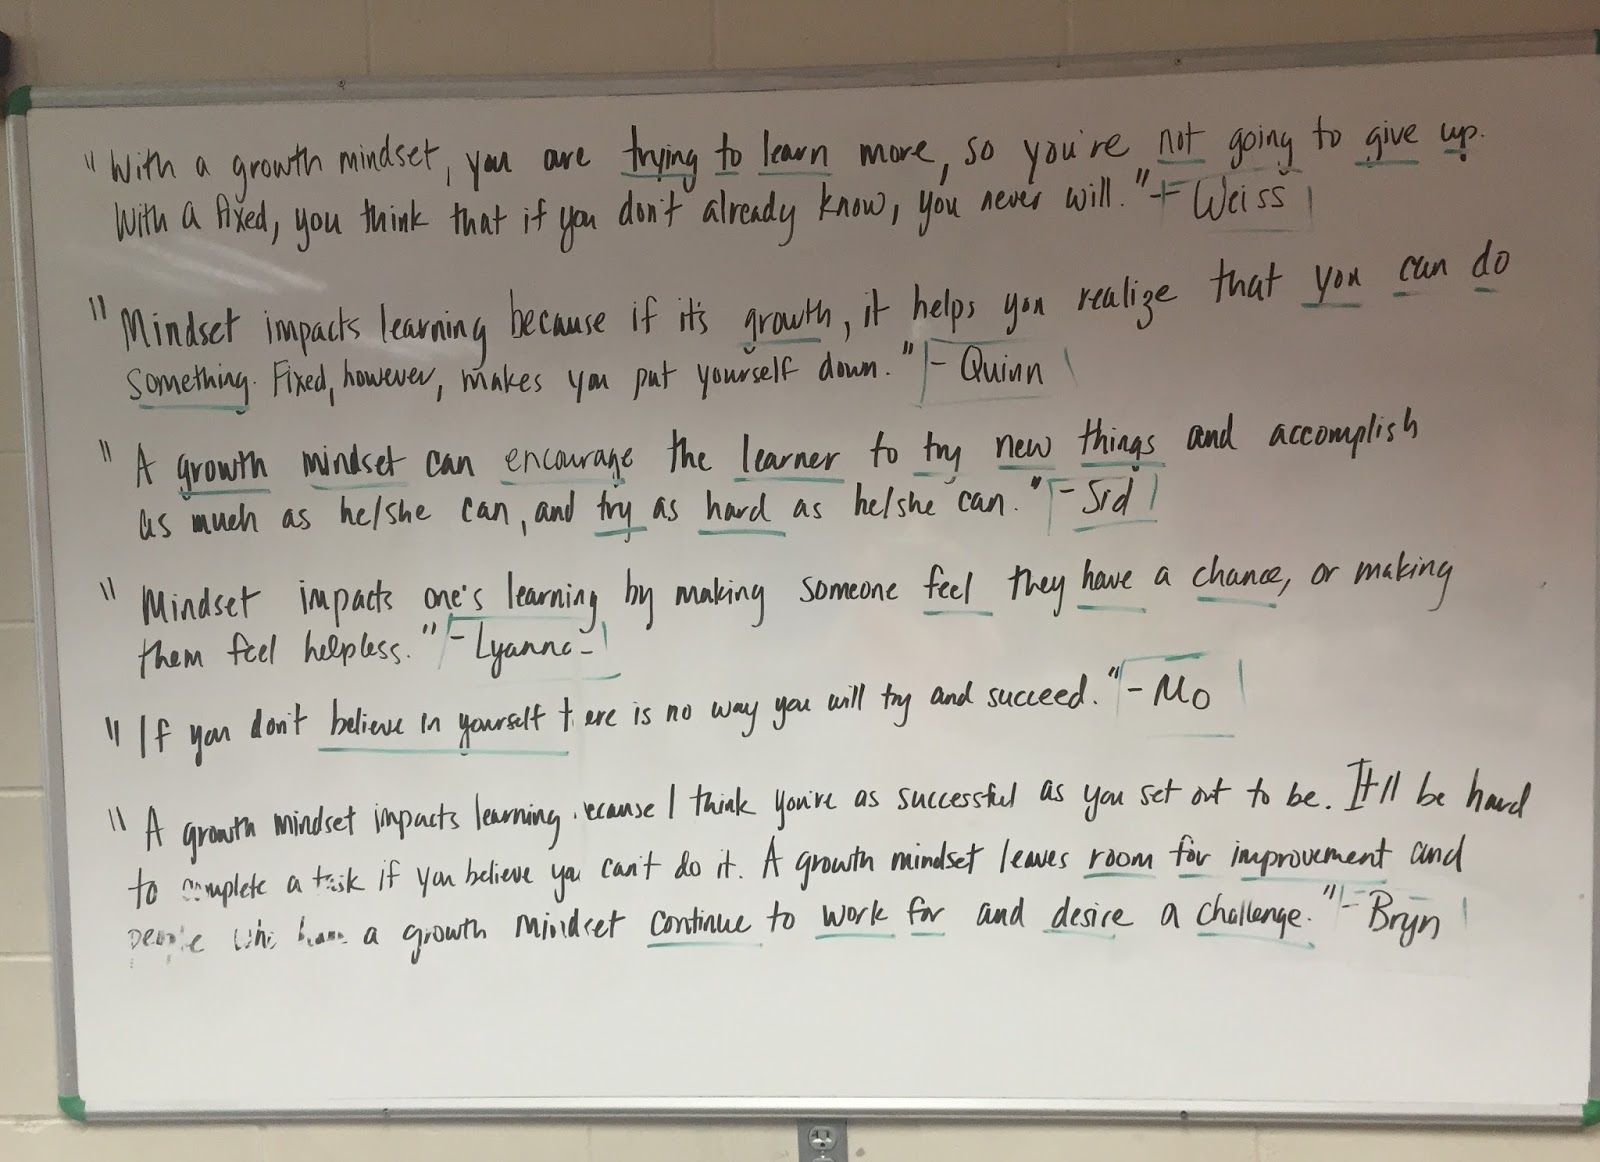 "With a growth mindset, you are trying to learn more, so you're not going to give up.
With a fixed, you think that if you don't already know, you never will." - Weiss
"Mindset impacts learning because if it's growth, it helps you realize that you can do
something. Fixed, however, makes you put yourself down." - Quinn
"A growth mindset can encourage the learner to try new things and accomplish
as much as he/she can, and try as hard as he/she can." - Sid
"Mindset impacts one's learning by making someone feel they have a chance, or making
them feel helpless." - Lyanna -
"If you don't believe in yourself t ere is no way you will try and succeed." - Mo
"A growth mindset impacts learning ecause I think you're as successful as you set out to be. It'll be hard
to complete a task if you believe you can't do it. A growth mindset leaves room for improvement and
people who have a growth mindset continue to work for and desire a challenge." - Bryn